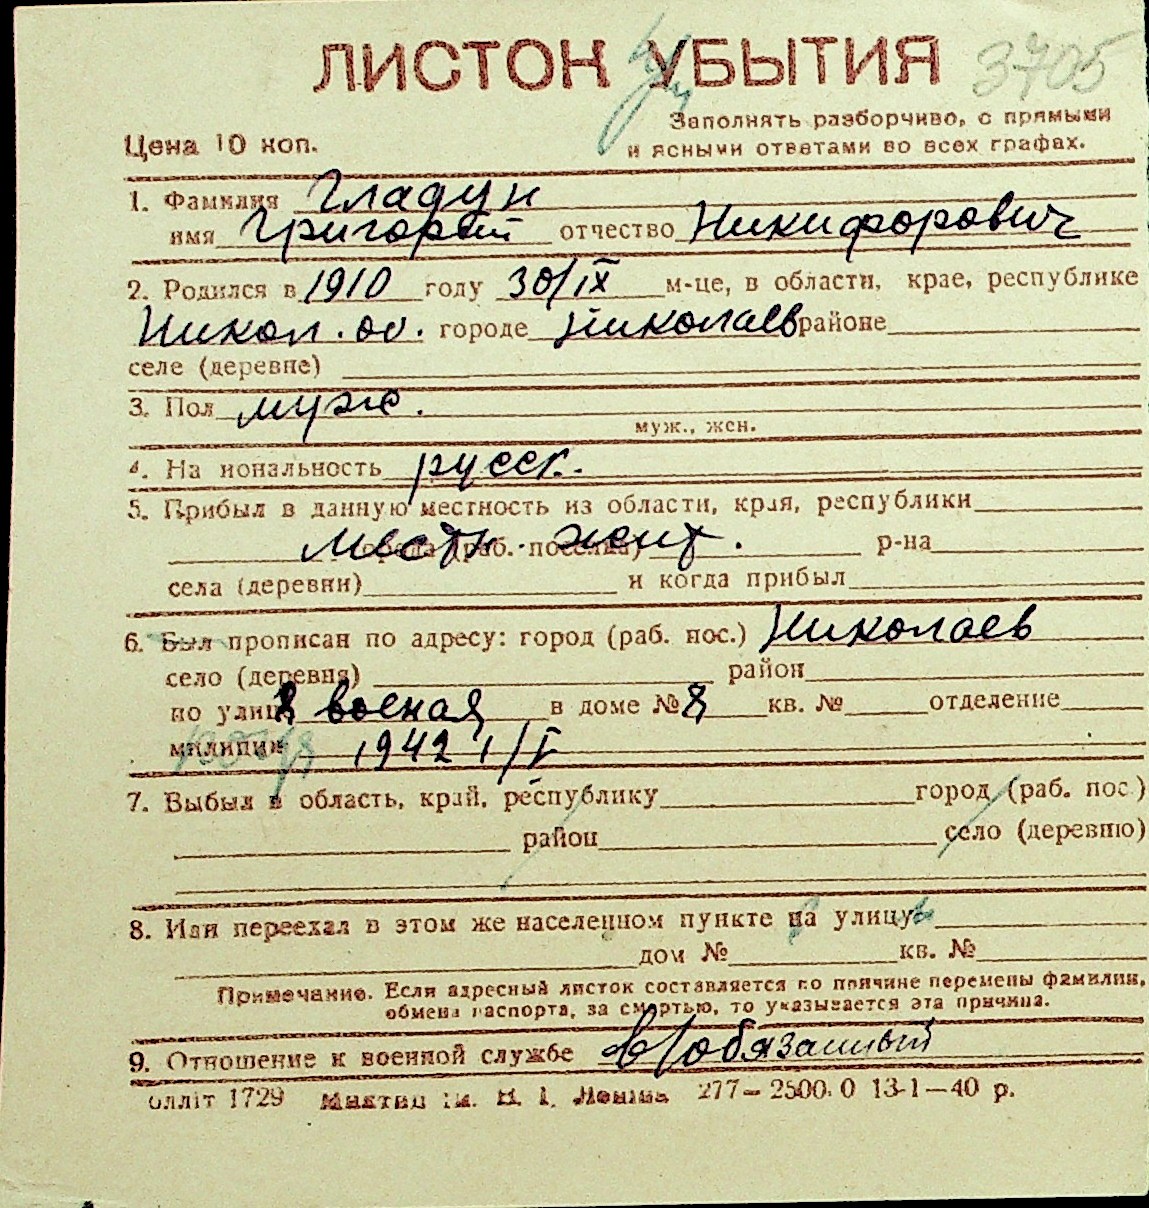 3705
ЛИСТОК УБЫТИЯ
Заполнять разборчиво, с прямыми
Цена 10 коп.
и ясными ответами во всех графах.
1. Фамилия Гладун
имя Григорий отчество Никифорович
2. Родился в 1910 году 30/IX м-це, в области, крае, республике
Никол. об. городе Николаев районе
селе (деревне)
3. Пол муж.
муж., жен.
4. На иональность русск.
5. Прибыл в данную местность из области, края, республики
местн. жит. города (раб. поселка) р-на
села (деревни) и когда прибыл
6. Был прописан по адресу: город (раб. пос.) Николаев
село (деревня) район
по улице 8 военая в доме № 8 кв. № отделение
милиции 1942 1/V
7. Выбыл в область, край, республику город (раб. пос.)
район село (деревню)
8. Или переехал в этом же населенном пункте на улицу
дом № кв. №
Примечание. Если адресный листок составляется по причине перемены фамилии,
обмена паспорта, за смертью, то указывается эта причина.
9. Отношение к военной службе в/обязанный
олліт 1729 277— 2500.0 13-1—40 р.